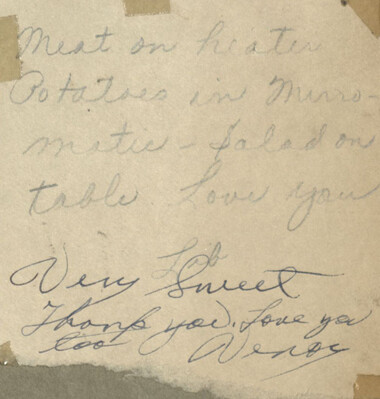 Meat on heater
Potatoes in Mirro-
matic - Salad on
table Love you
Very Sweet
Thank you. Love you
too